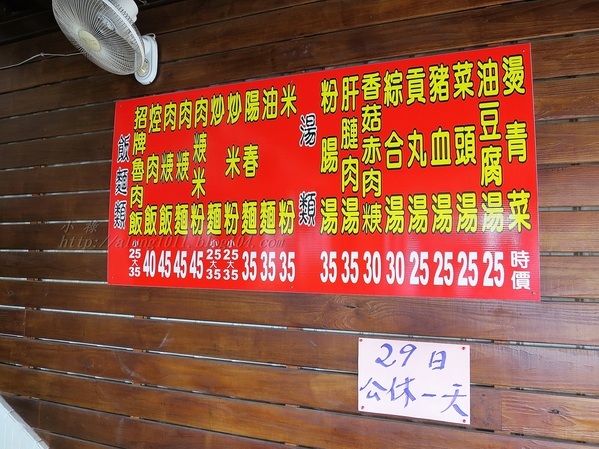 飯麵類
招牌魯肉飯 小25大35
焢肉飯 40
肉焿飯 45
肉焿麵 45
肉焿米粉 45
炒麵 小25大35
炒米粉 小25大35
陽春麵 35
油麵 35
米粉 35
湯類
粉腸湯 35
肝𦟪肉湯 35
香菇赤肉焿 30
綜合湯 30
貢丸湯 25
豬血湯 25
菜頭湯 25
油豆腐湯 25
燙青菜 時價
29日
公休一天